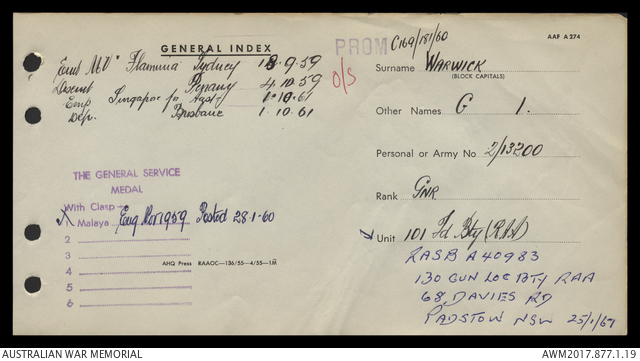 GENERAL INDEX
Emb MV Flaminia Sydney 18.9.59
Disemb Penang 4.10.59
Emp Singapore 1.10.61
Dep. Brisbane 1.10.61
PROM C169/181/60
O/S
AAF A 274
Surname WARWICK
(BLOCK CAPITALS)
Other Names G I.
Personal or Army No. 2/13200
Rank GNR
Unit 101 Fd Bty (RAA)
RASB A 40983
130 GUN LOC BTY RAA
68, DAVIES RD
PADSTOW NSW 25/1/67
THE GENERAL SERVICE
MEDAL
With Clasp
X 1 Malaya Eng Posted 28.1.60
2
3
4
5
6
AHQ Press RAAOC—136/55—4/55—1M
AUSTRALIAN WAR MEMORIAL
AWM2017.877.1.19